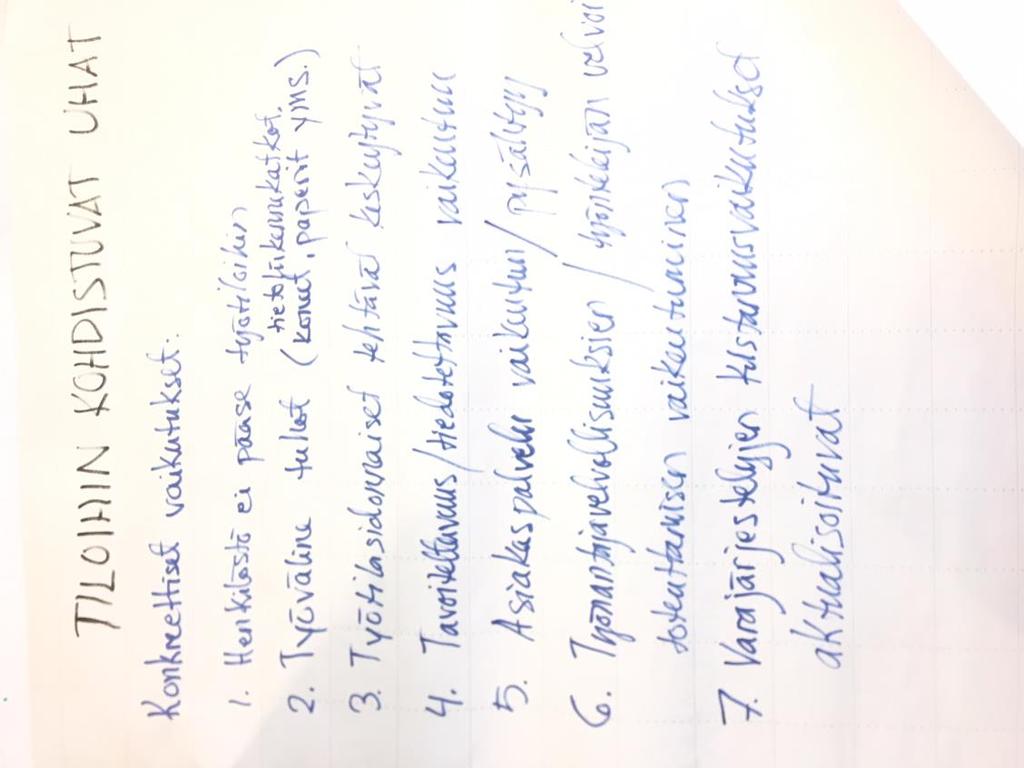 TILOIHIN KOHDISTUVAT UHAT
Konkreettiset vaikutukset:
1. Henkilöstö ei pääse työtiloihin
tietoliikennekatkot,
2. Työväline tuhot (koneet, paperit yms.)
3. Työtilasidonnaiset tehtävät keskeytyvät
4. Tavoitettavuus/tiedotettavuus vaikeutuu
5. Asiakaspalvelu vaikeutuu/pysähtyy
6. Työnantajavelvollisuuksien / työntekijän velvoi
toteuttamisen vaikeutuminen
7. Varajärjestelyjen kustannusvaikutukset
aktualisoituvat